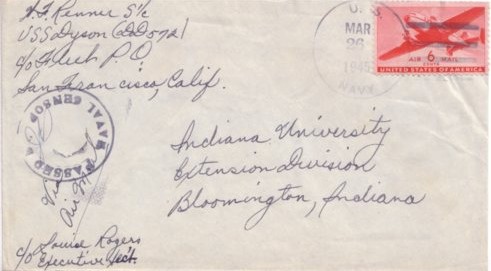 H.F. Renner S1/c
USS Dyson (DD572)
c/o Fleet P.O.
San Francisco, Calif.
U. S.
MAR
26
1945
NAVY
AIR 6 MAIL
CENTS
UNITED STATES OF AMERICA
PASSED
NAVAL CENSOR
Via
Air Mail
Indiana University
Extension Division
Bloomington, Indiana
c/o Louise Rogers
Executive Sect.